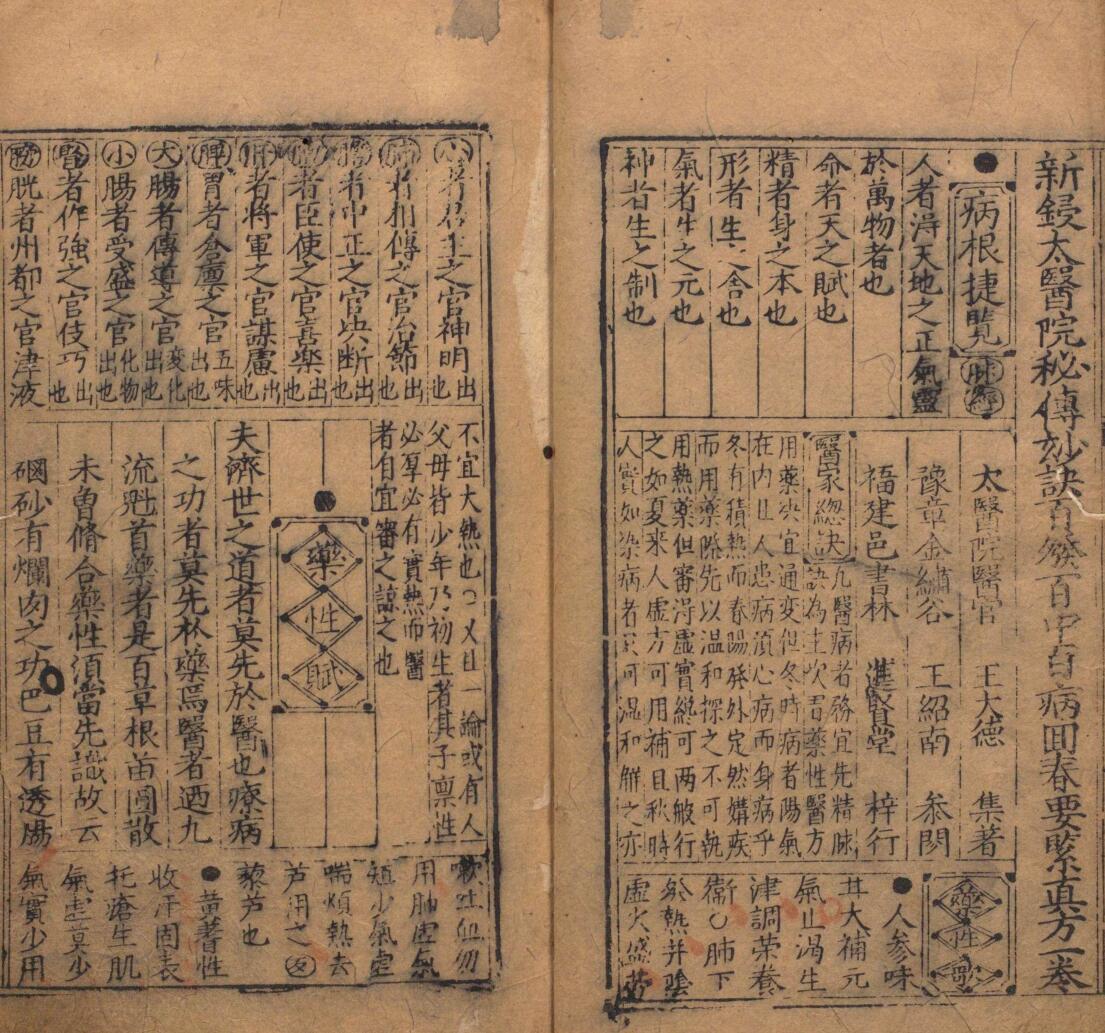 新鋟太醫院秘傳妙訣百發百中百病回春要緊真方一卷
病根捷覽
人者淂天地之正氣靈
於萬物者也
命者天之賦也
精者身之本也
形者生之舍也
氣者生之元也
神者生之制也
太醫院醫官 王大德 集著
豫章金繡谷 王紹南 叅閱
福建邑書林 賢堂 梓行
醫家總訣
凡醫病者務宜先精脉
訣為主次看藥性醫方
用藥决宜通變但冬時病者陽氣
在內且人患病須心病而身病乎
冬有積熱而春陽發外定然媾疾
而用藥際先以温和探之不可執
用熱藥但審淂虛實縱可两般行
之如夏來人虛方可用補且秋時
人實如染病者只可温和觧之亦
藥性歌
●人參味
甘大補元
氣止渴生
津調荣養
衛○肺下
虛火盛勞
心者君主之官神明出也
肺者相傳之官治節出也
膽者中正之官决断出也
者臣使之官喜樂出也
肝者將軍之官謀慮出也
脾胃者倉廩之官五味出也
大腸者傳導之官変化出也
小腸者受盛之官化物出也
腎者作強之官伎巧出也
胱者州都之官津液
不宜大熱也○又且一論或有人
父母皆少年乃初生者其子禀性
必厚必有實熱而醫
者自宜審之諒之也
藥性賦
夫濟世之道者莫先於醫也療病
之功者莫先於藥焉醫者迺九
流魁首藥者是百草根苗圓散
未曾脩合藥性須當先識故云
硇砂有爛肉之功巴豆有透腸
嗽吐血勿
用肺虛氣
短少氣虛
喘煩熱去
芦用之反
藜芦也
●黃蓍性
收汗固表
托瘡生肌
氣虛莫少
氣實少用